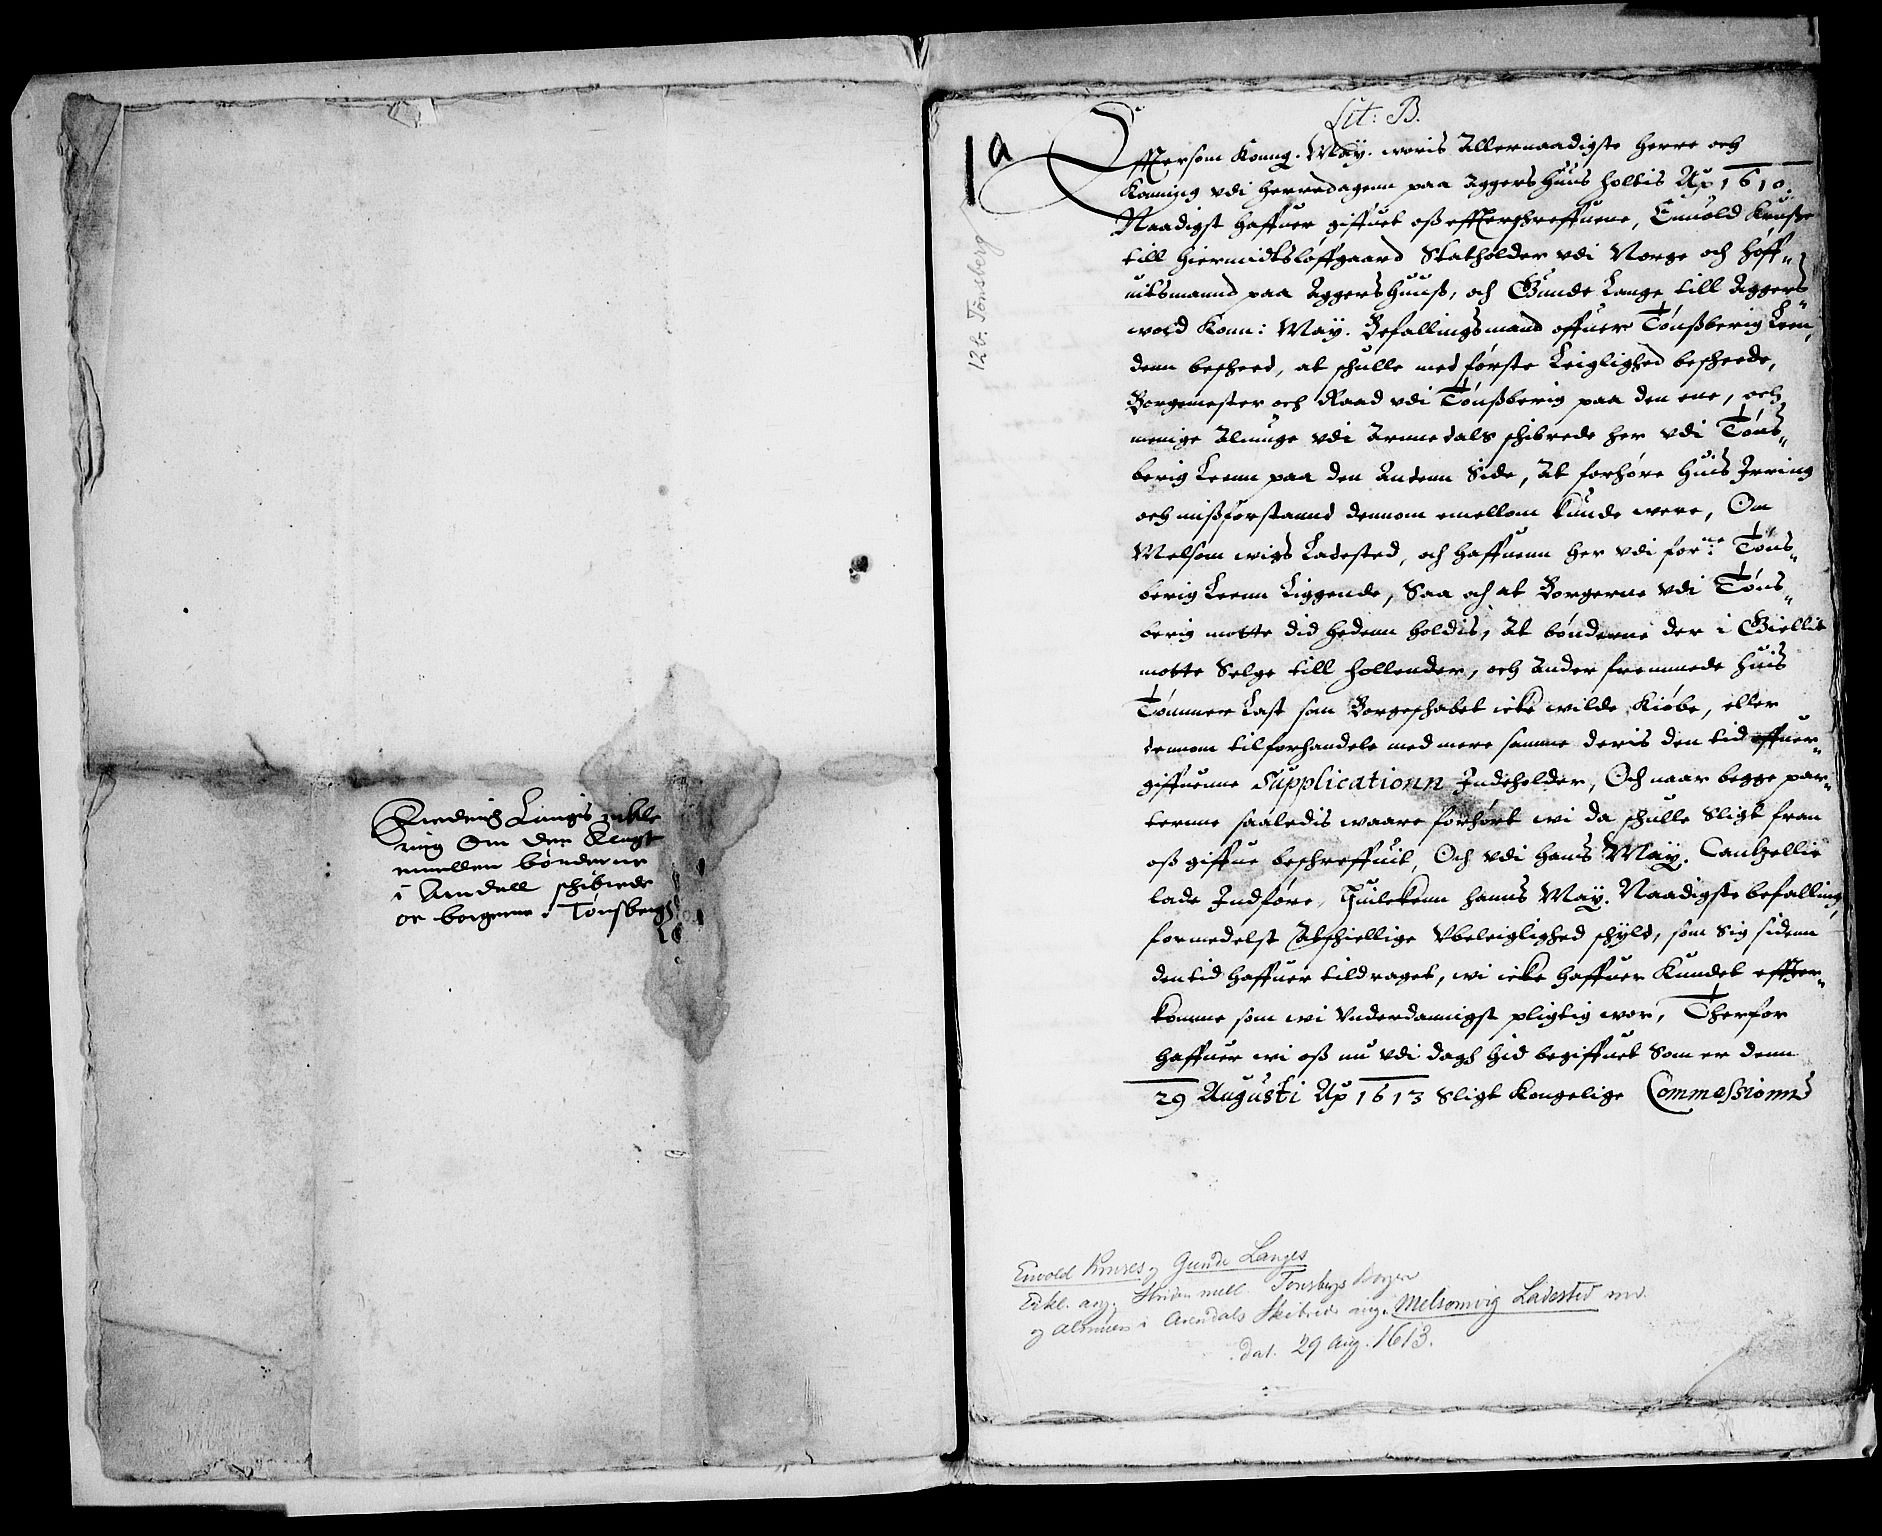 Friedrich Langis erkle
ring Om den Tragt
emellem bønderne
i Arndall schibrede
oc borgerne i Tønsbergh
Lit: B.
1 a
12 b. Tønsberg
Effttersom Konng. May. woris Allernaadigste Herre och
Konning vdi Herredagenn paa Aggershuus holtis Ap 1610.
Naadigst haffuer giffuet oss effterschreffuene, Enuold Krusse
till Hiermidtsløffgaard Statholder vdi Norge och Høff„
uitsmannd paa Aggershuuss, och Gunde Lange till Aggers„
wold Konn: May. Befallingsmand offuer Tønssberig Leen„
denn bescheed, at schulle med første Leiglighed bescheede,
Borgemester och Raad vdi Tønssberig paa den ene, och
menige Almuge vdi Arnnedals schibrede her vdi Tøns„
berig Leenn paa den Andenn Side, At forhøre Huis Irring
och missforstannd dennom emellom kunde were, Om
Melsom wigs Ladested, och haffuenn her vdi forne: Tøns„
berig Leenn Liggende, Saa och at Borgerne vdi Tøns„
berig motte did hedenn holdis, At bønderne der i Giellit
motte Selge till Hollender, och Ander fremmede Huis
Tømmer Last som Borgeschabet icke wilde Kiøbe, eller
dennom tilforhandele med mere samme deris den tid offuer„
giffuenne Supplicationn Indeholder, Och naar begge par„
terne saaledis waare forhørt wi da schulle Sligt fran
oss giffue beschreffuit, Och vdi Hans May. Cantzellie
lade Indføre, Huilckenn Hanns May. Naadigste befalling,
formedelst Atschiellige Vbeleiglighed schyld, som Sig sidenn
den tid haffuer tildraget, wi icke haffuer Kundet effter„
komme som wi Vnderdannigst pligtig wor, Therfor
haffuer wi oss nu vdi dagh hid begiffuet Som er denn
29 Augusti Ap 1613 Sligt Kongelige Commessionns
Envold Kruses og Gunde Langes
Erkl. ang. Striden mell. Tønsbergs Borgere
og Almuen i Arendals Skibrede ang. Melsomvig Ladested m.v.
dat. 29 Aug. 1613.